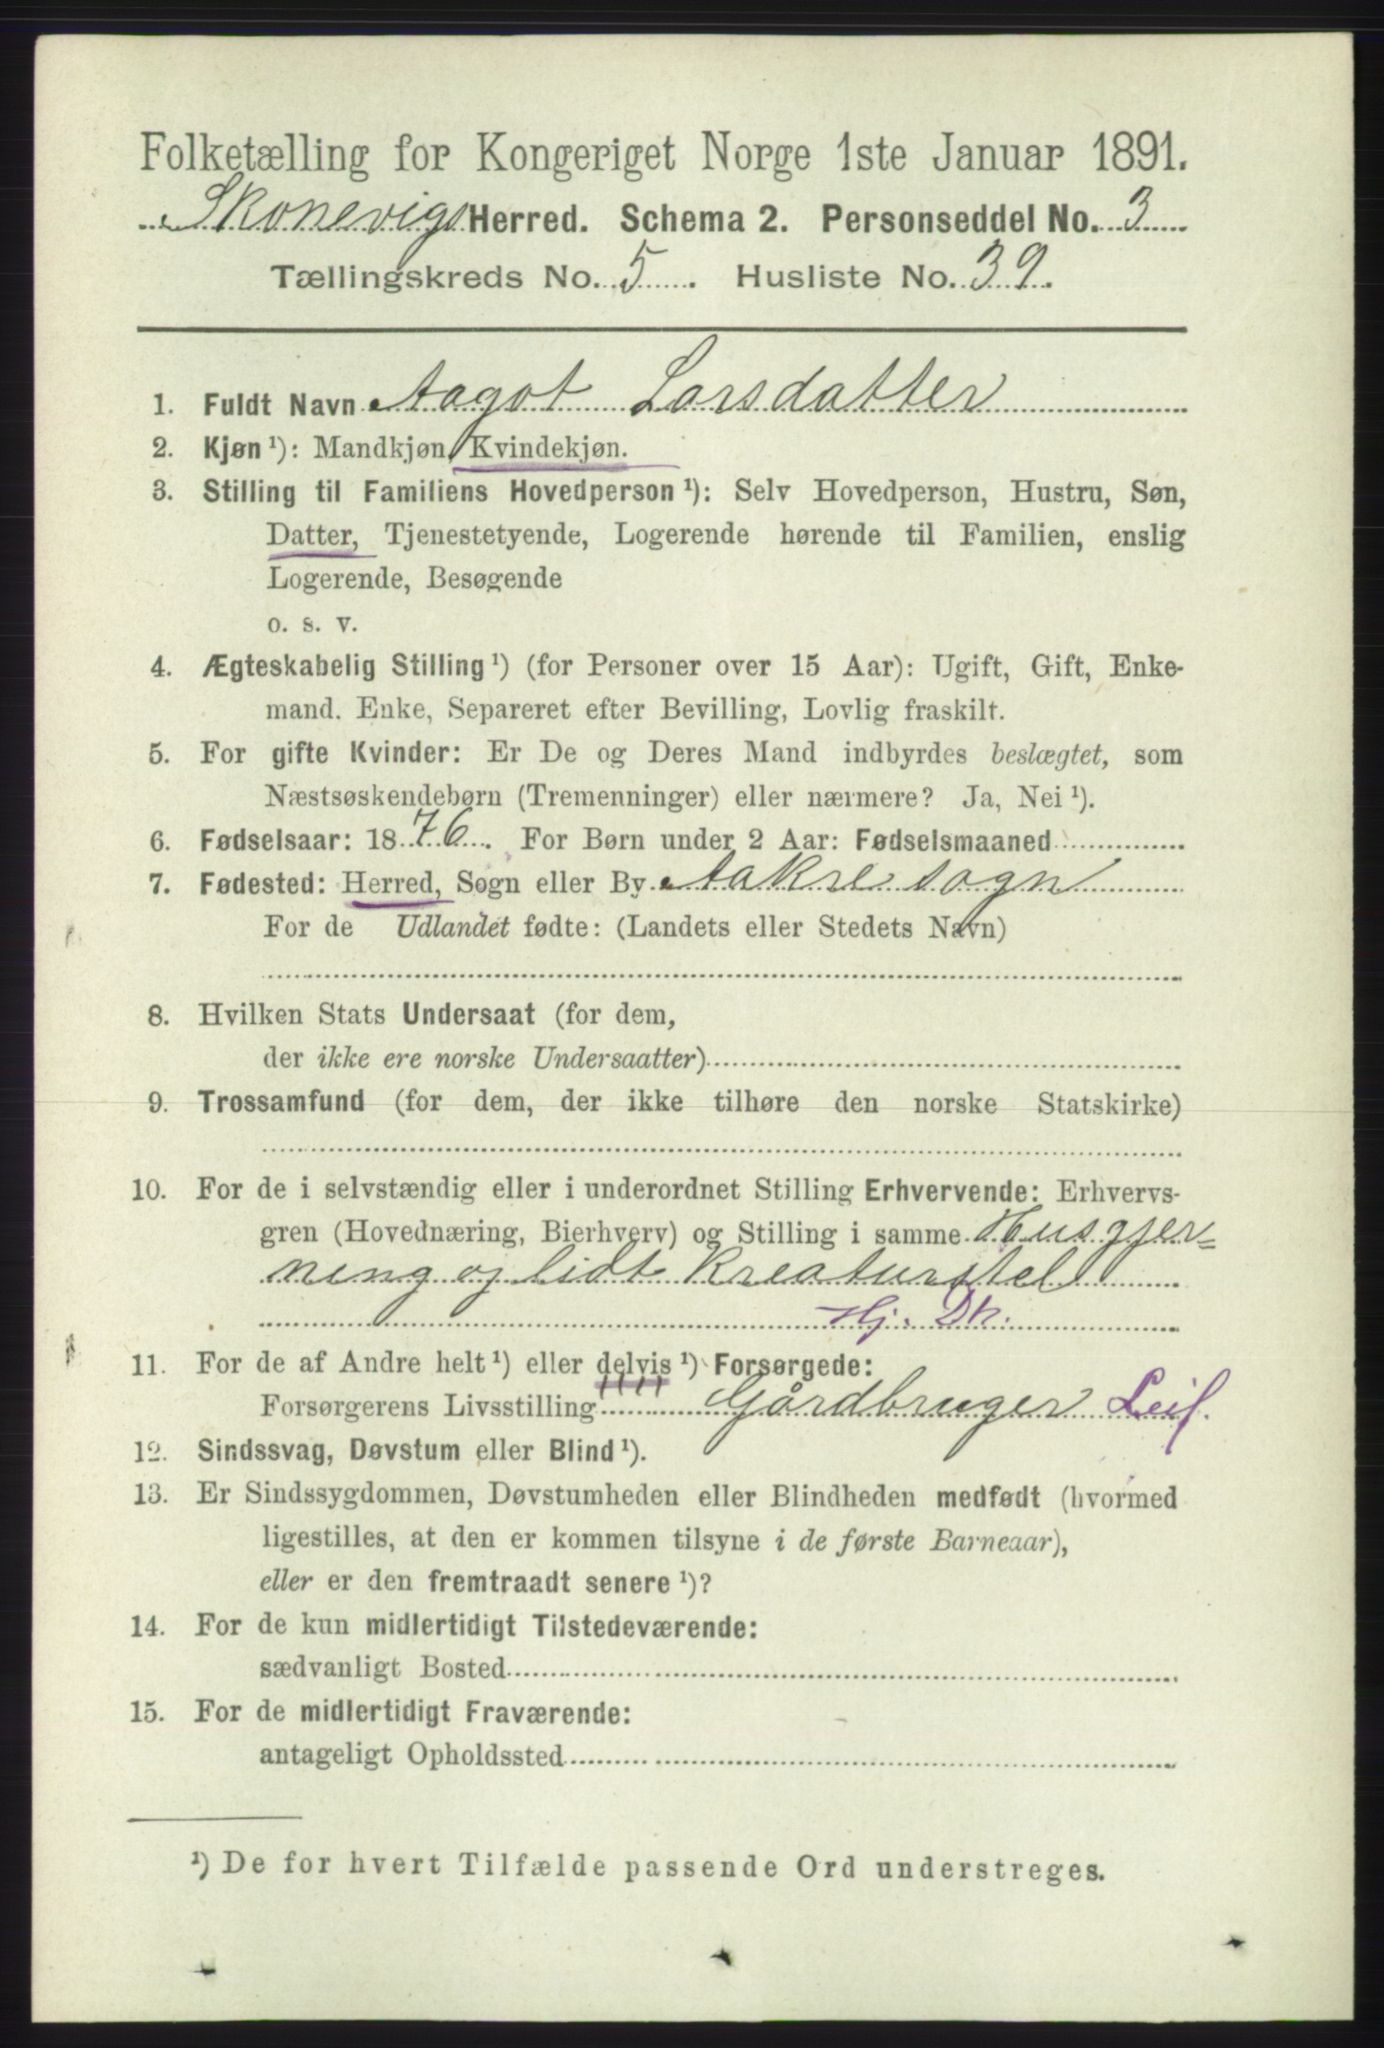 Folketælling for Kongeriget Norge 1ste Januar 1891.
Skonevigs Herred. Schema 2. Personseddel No. 3
Tællingskreds No. 5. Husliste No. 39.
1. Fuldt Navn Aagot Larsdatter
2. Kjøn ¹): Mandkjøn, Kvindekjøn.
3. Stilling til Familiens Hovedperson ¹): Selv Hovedperson, Hustru, Søn,
Datter, Tjenestetyende, Logerende hørende til Familien, enslig
Logerende, Besøgende
o. s. v.
4. Ægteskabelig Stilling ¹) (for Personer over 15 Aar): Ugift, Gift, Enke-
mand. Enke, Separeret efter Bevilling, Lovlig fraskilt.
5. For gifte Kvinder: Er De og Deres Mand indbyrdes beslægtet, som
Næstsøskendebørn (Tremenninger) eller nærmere? Ja, Nei ¹).
6. Fødselsaar: 1876. For Børn under 2 Aar: Fødselsmaaned
7. Fødested: Herred, Sogn eller By Aakre sogn
For de Udlandet fødte: (Landets eller Stedets Navn)
8. Hvilken Stats Undersaat (for dem,
der ikke ere norske Undersaatter)
9. Trossamfund (for dem, der ikke tilhøre den norske Statskirke)
10. For de i selvstændig eller i underordnet Stilling Erhvervende: Erhvervs-
gren (Hovednæring, Bierhverv) og Stilling i samme Husgjer=
ning og lidt Kreaturstel
Hj. Dtr.
11. For de af Andre helt ¹) eller delvis ¹) Forsørgede:
Forsørgerens Livsstilling Gårdbruger Leil.
12. Sindssvag, Døvstum eller Blind ¹).
13. Er Sindssygdommen, Døvstumheden eller Blindheden medfødt (hvormed
ligestilles, at den er kommen tilsyne i de første Barneaar),
eller er den fremtraadt senere ¹)?
14. For de kun midlertidigt Tilstedeværende:
sædvanligt Bosted
15. For de midlertidigt Fraværende:
antageligt Opholdssted
¹) De for hvert Tilfælde passende Ord understreges.